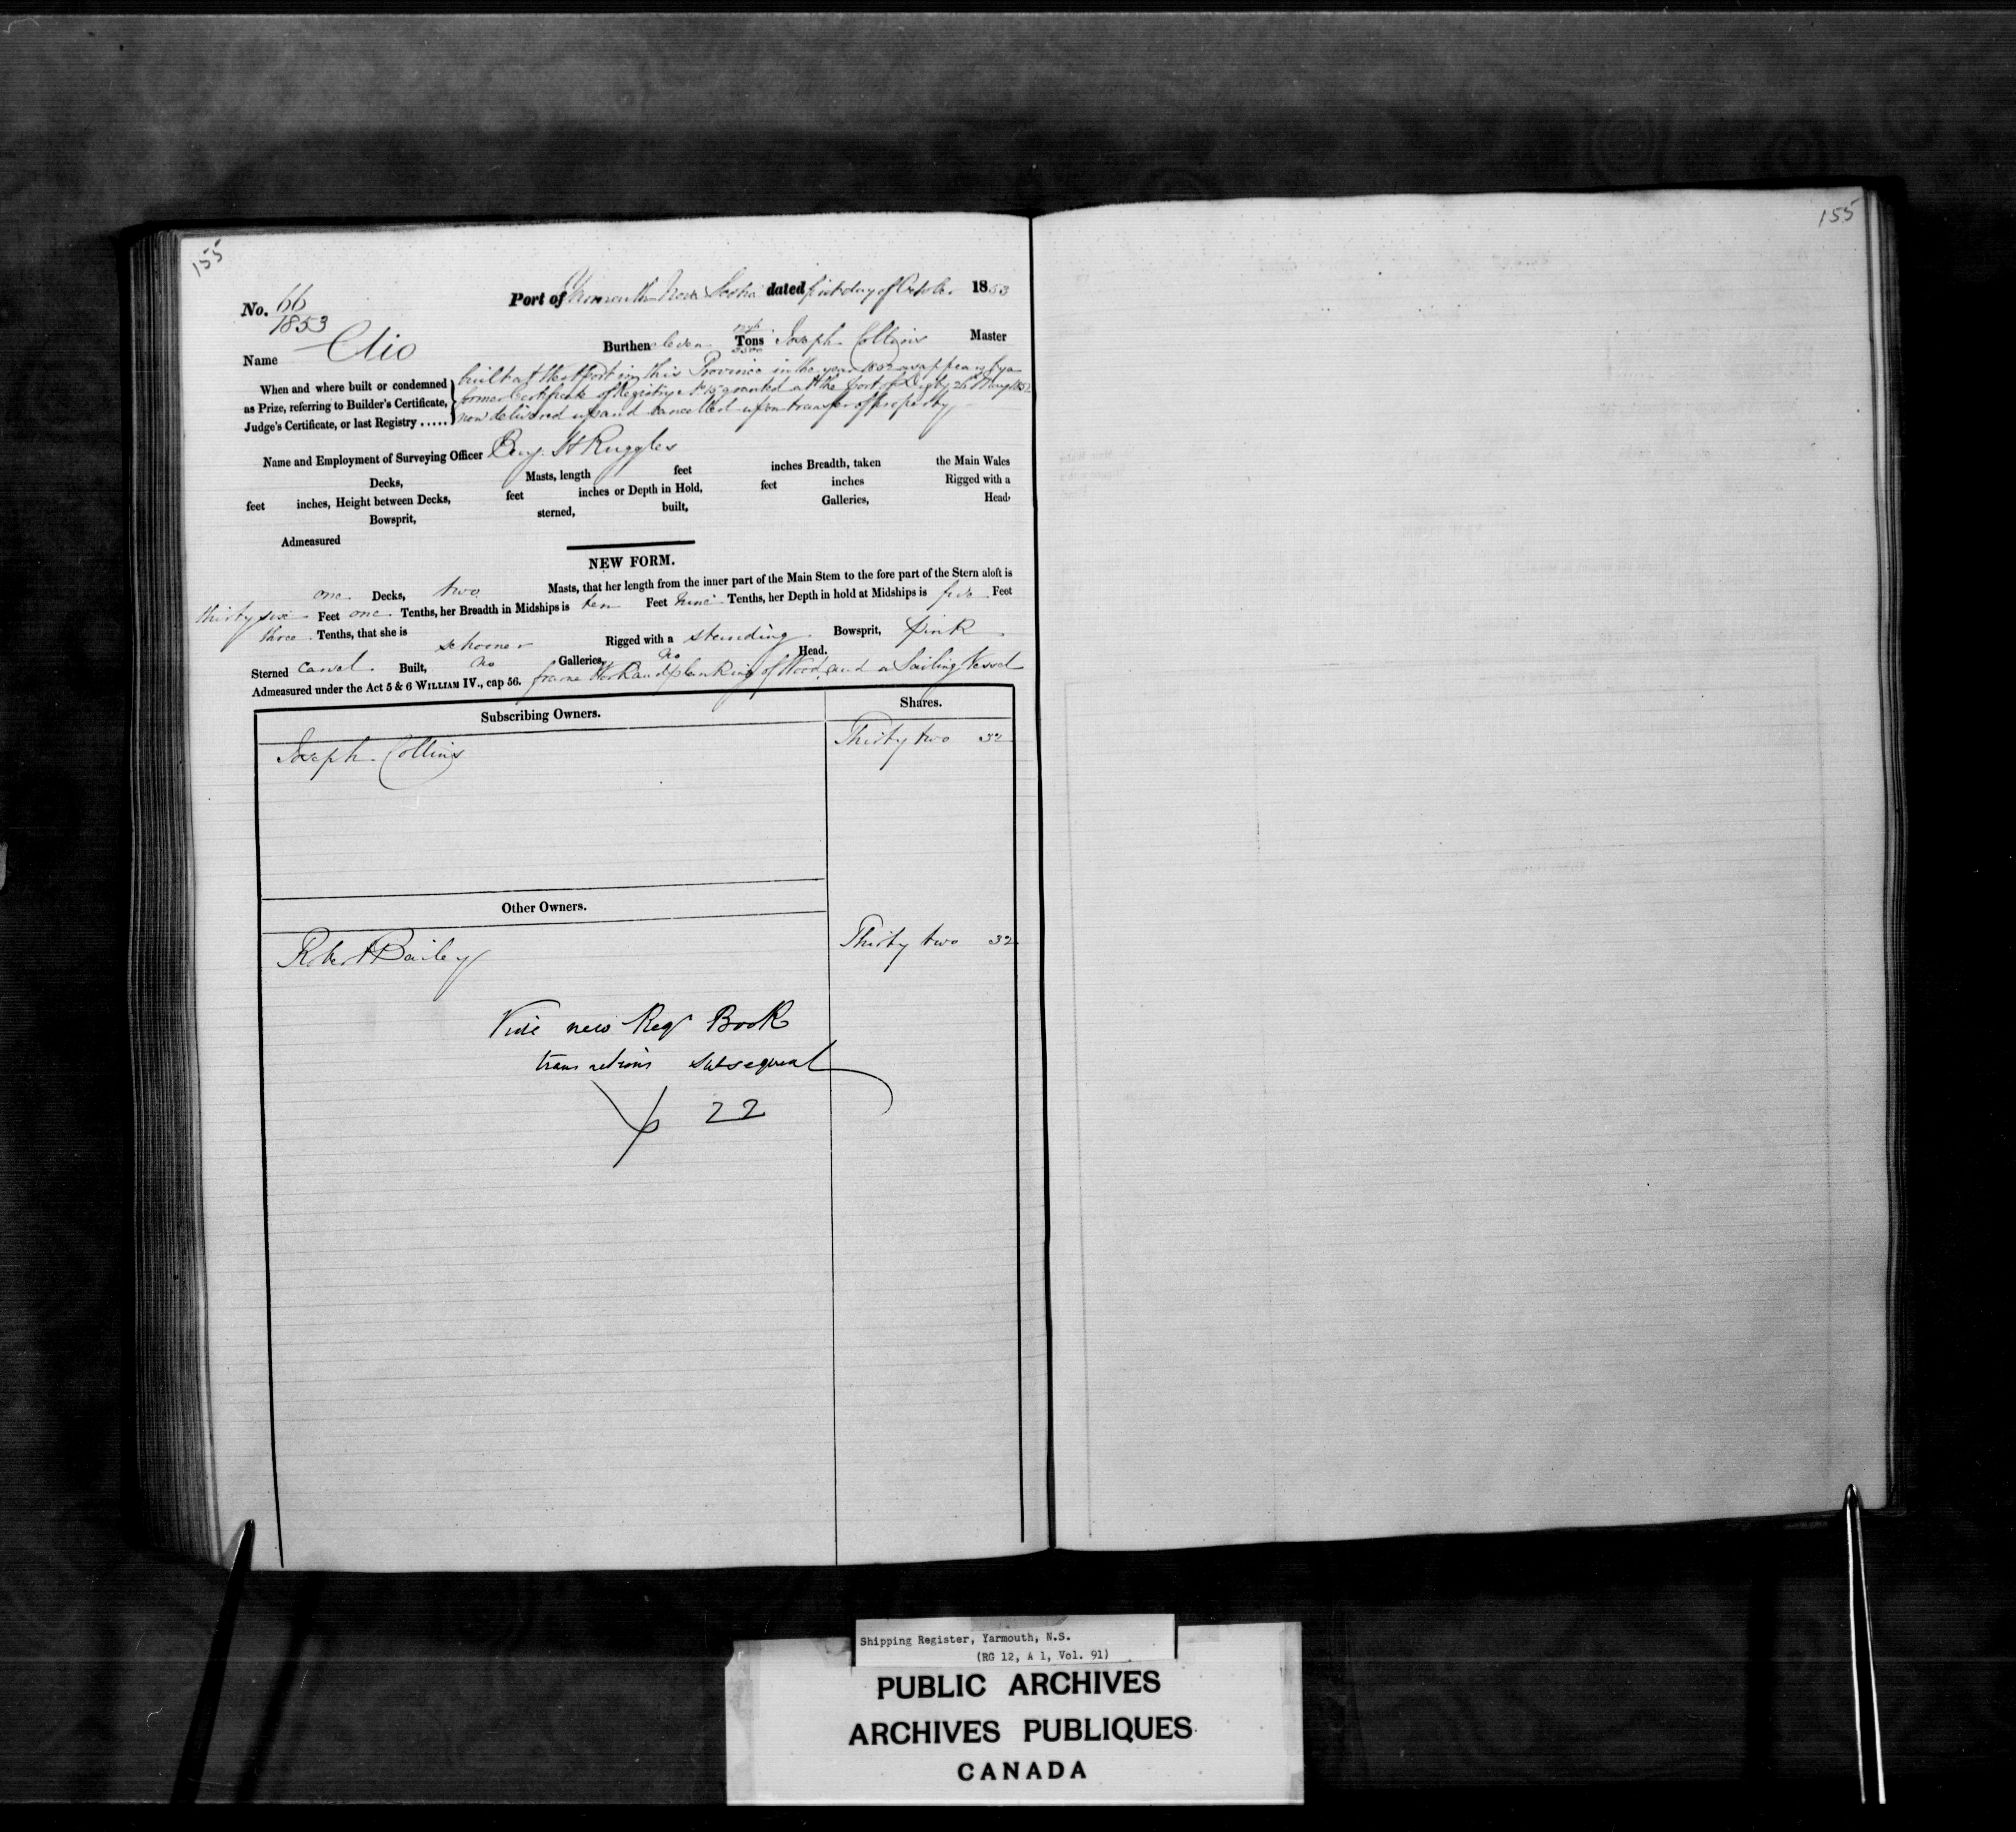 155
155
No. 66
1853
Port of Yarmouth Nova Scotia dated first day of October 1853
Name Clio
Burthen eleven Tons Joseph Collins Master
3500
When and where built or condemned
as Prize, referring to Builder's Certificate,
Judge's Certificate, or last Registry .....
built at Westport in this Province in the year 1852 as appears by a
former Certificate of Registry No 15 granted at the Port of Digby 26th May 1852
now delivered up and cancelled upon transfer of property
Name and Employment of Surveying Officer Benj. H Ruggles
Decks, Masts, length feet inches Breadth, taken the Main Wales
feet inches, Height between Decks, feet inches or Depth in Hold, feet inches Rigged with a
Bowsprit, sterned, built, Galleries, Head,
Admeasured
NEW FORM.
one Decks, two Masts, that her length from the inner part of the Main Stem to the fore part of the Stern aloft is
thirty six Feet one Tenths, her Breadth in Midships is ten Feet nine Tenths, her Depth in hold at Midships is five Feet
three Tenths, that she is schooner Rigged with a standing Bowsprit, pink
Sterned carvel Built, no Galleries, no Head.
Admeasured under the Act 5 & 6 WILLIAM IV., cap 56. frame Work and planking of Wood, and a Sailing Vessel
Subscribing Owners. Shares.
Joseph Collins Thirty two 32
Other Owners.
Robert Bailey Thirty two 32
Vide new Regr Book
transactions subsequent
p 22
Shipping Register, Yarmouth, N.S.
(RG 12, A 1, Vol. 91)
PUBLIC ARCHIVES
ARCHIVES PUBLIQUES
CANADA